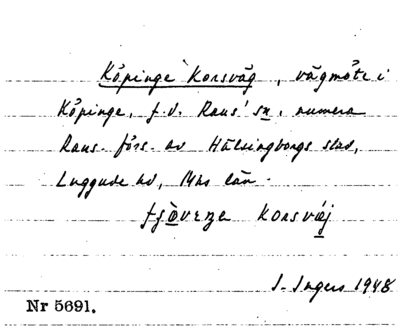 Köpinge Korsväg, vägmöte i
Köpinge, f.d. Raus' sn, numera
Raus förs. av Hälsingborgs stad,
Luggude hd, Mhs län.
korsväj
I. Ingers 1948
Nr 5691.